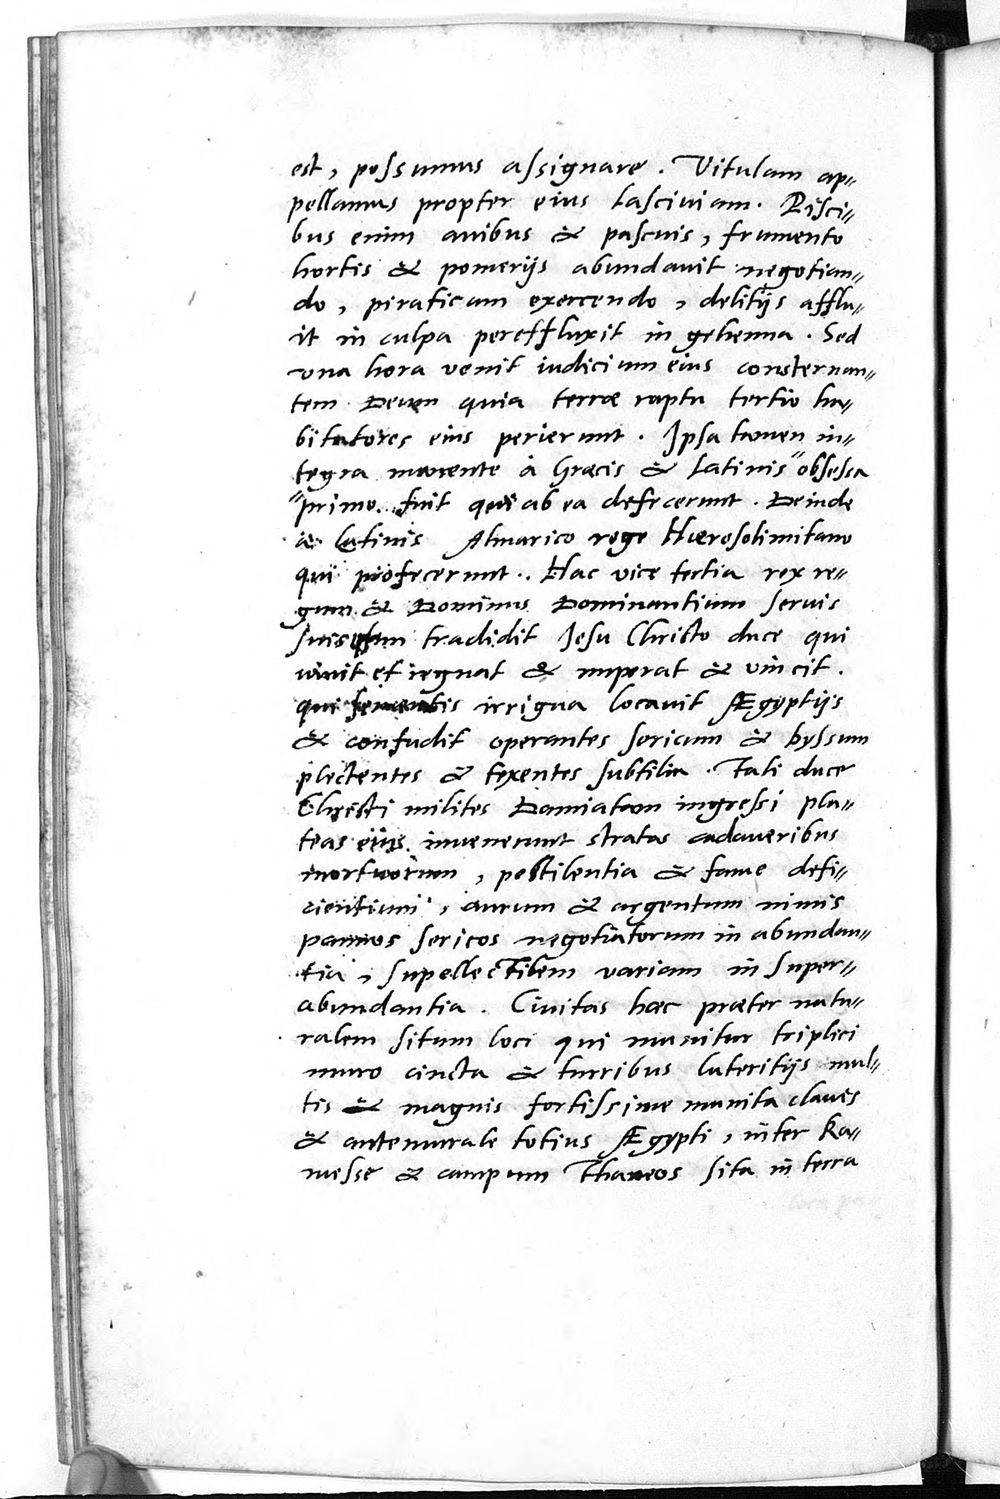 est, possumus assignare. Vitulam ap=
pellamus propter eius lasciviam. Pisci=
bus enim avibus & pascuis, frumento
hortis & pomerijs abundavit negotian=
do, piraticam exercendo, delitijs afflu=
it in culpa pereffluxit in gehenna. Sed
una hora venit iudicium eius consternan=
tem quia terræ raptu tertio ha=
bitatores eius perierunt. Ipsa tamen in=
tegra manente à Græcis & Latinis obsessa
primo fuit qui ab ea defecerunt. Deinde
à Latinis Almarico rege Hierosolimitano
qui profecerunt. Hac vice tertia rex re=
gum & Dominus Dominantium servis
suis tradidit Jesu Christo duce qui
vivit et regnat & imperat & vincit.
qui irrigua locavit Ægyptijs
& confudit operantes sericum & byssum
plectentes & texentes subtilia. Tali duce
Christi milites Damiatam ingressi pla=
teas eius invenerunt stratas cadaveribus
mortuorum, pestilentia & fame defi=
cientium, aurum & argentum nimis
pannos sericos negotiatorum in abundan=
tia, supellectilem variam in super=
abundantia. Civitas hæc præter natu=
ralem situm loci qui munitur triplici
muro cincta & turribus lateritijs mul=
tis & magnis fortissime munita clavis
& antemurale totius Ægypti, inter Ra=
messe & campum Thaneos sita in terra